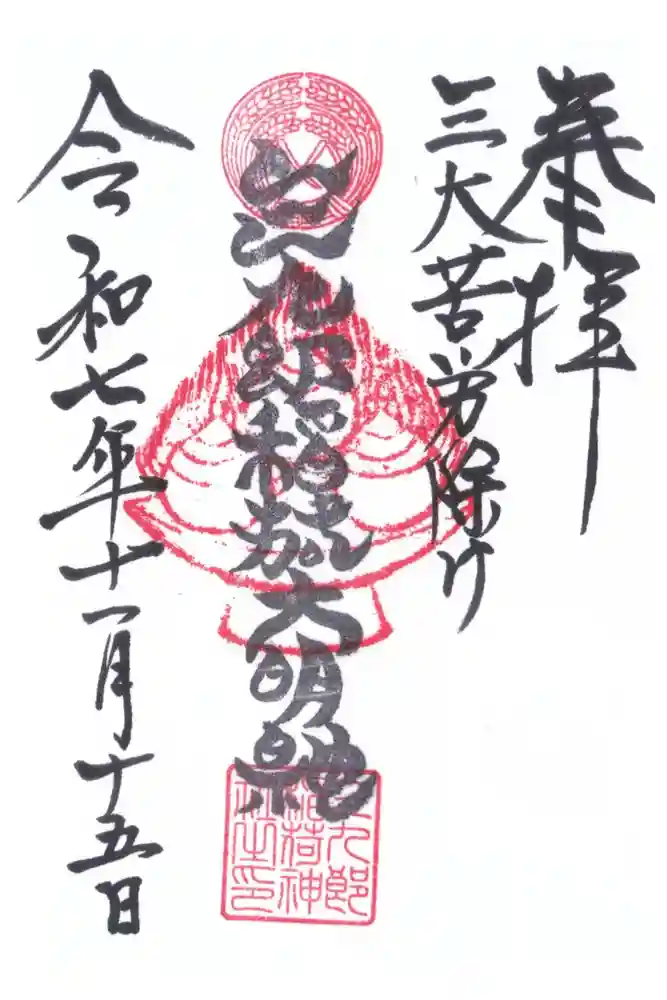 奉拝
三大苦労除け
三九郎稲荷大明神
九郎
稲荷神
社之印
令和七年十一月十五日